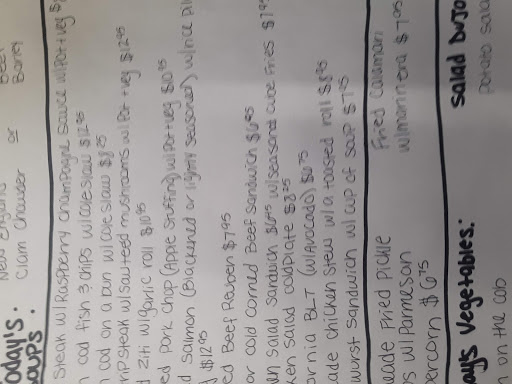 oday's
oups:
New England
Clam Chowder
or
Beef
Barley
Steak w/Raspberry Champagne Sauce w/Pot+veg $
n cod fish & chips w/coleslaw $12.95
n cod on a bun w/cole slaw $8.25
rip steak w/Sauteed mushrooms w/Pot+veg $12.95
d Ziti w/garlic roll $10.95
ed Pork Chop (Apple stuffing) w/Pot+veg $10.95
d Salmon (Blackened or lightly seasoned) w/rice
$12.95
ed Beef Reuben $7.95
or cold corned Beef Sandwich $6.95
en salad sandwich $6.95 w/seasoned curve fries $7.95
ken salad coldplate $8.25
ornia BLT (w/Avocado) $6.75
ade chicken stew w/a toasted roll $8.95
wurst sandwich w/cup of soup $7.75
ade Fried Pickle
s w/Parmesan
ercorn $6.75
Fried Calamari
w/marinara $7.95
ay's Vegetables:
n on the cob
Salad DuJo
Potato Sala